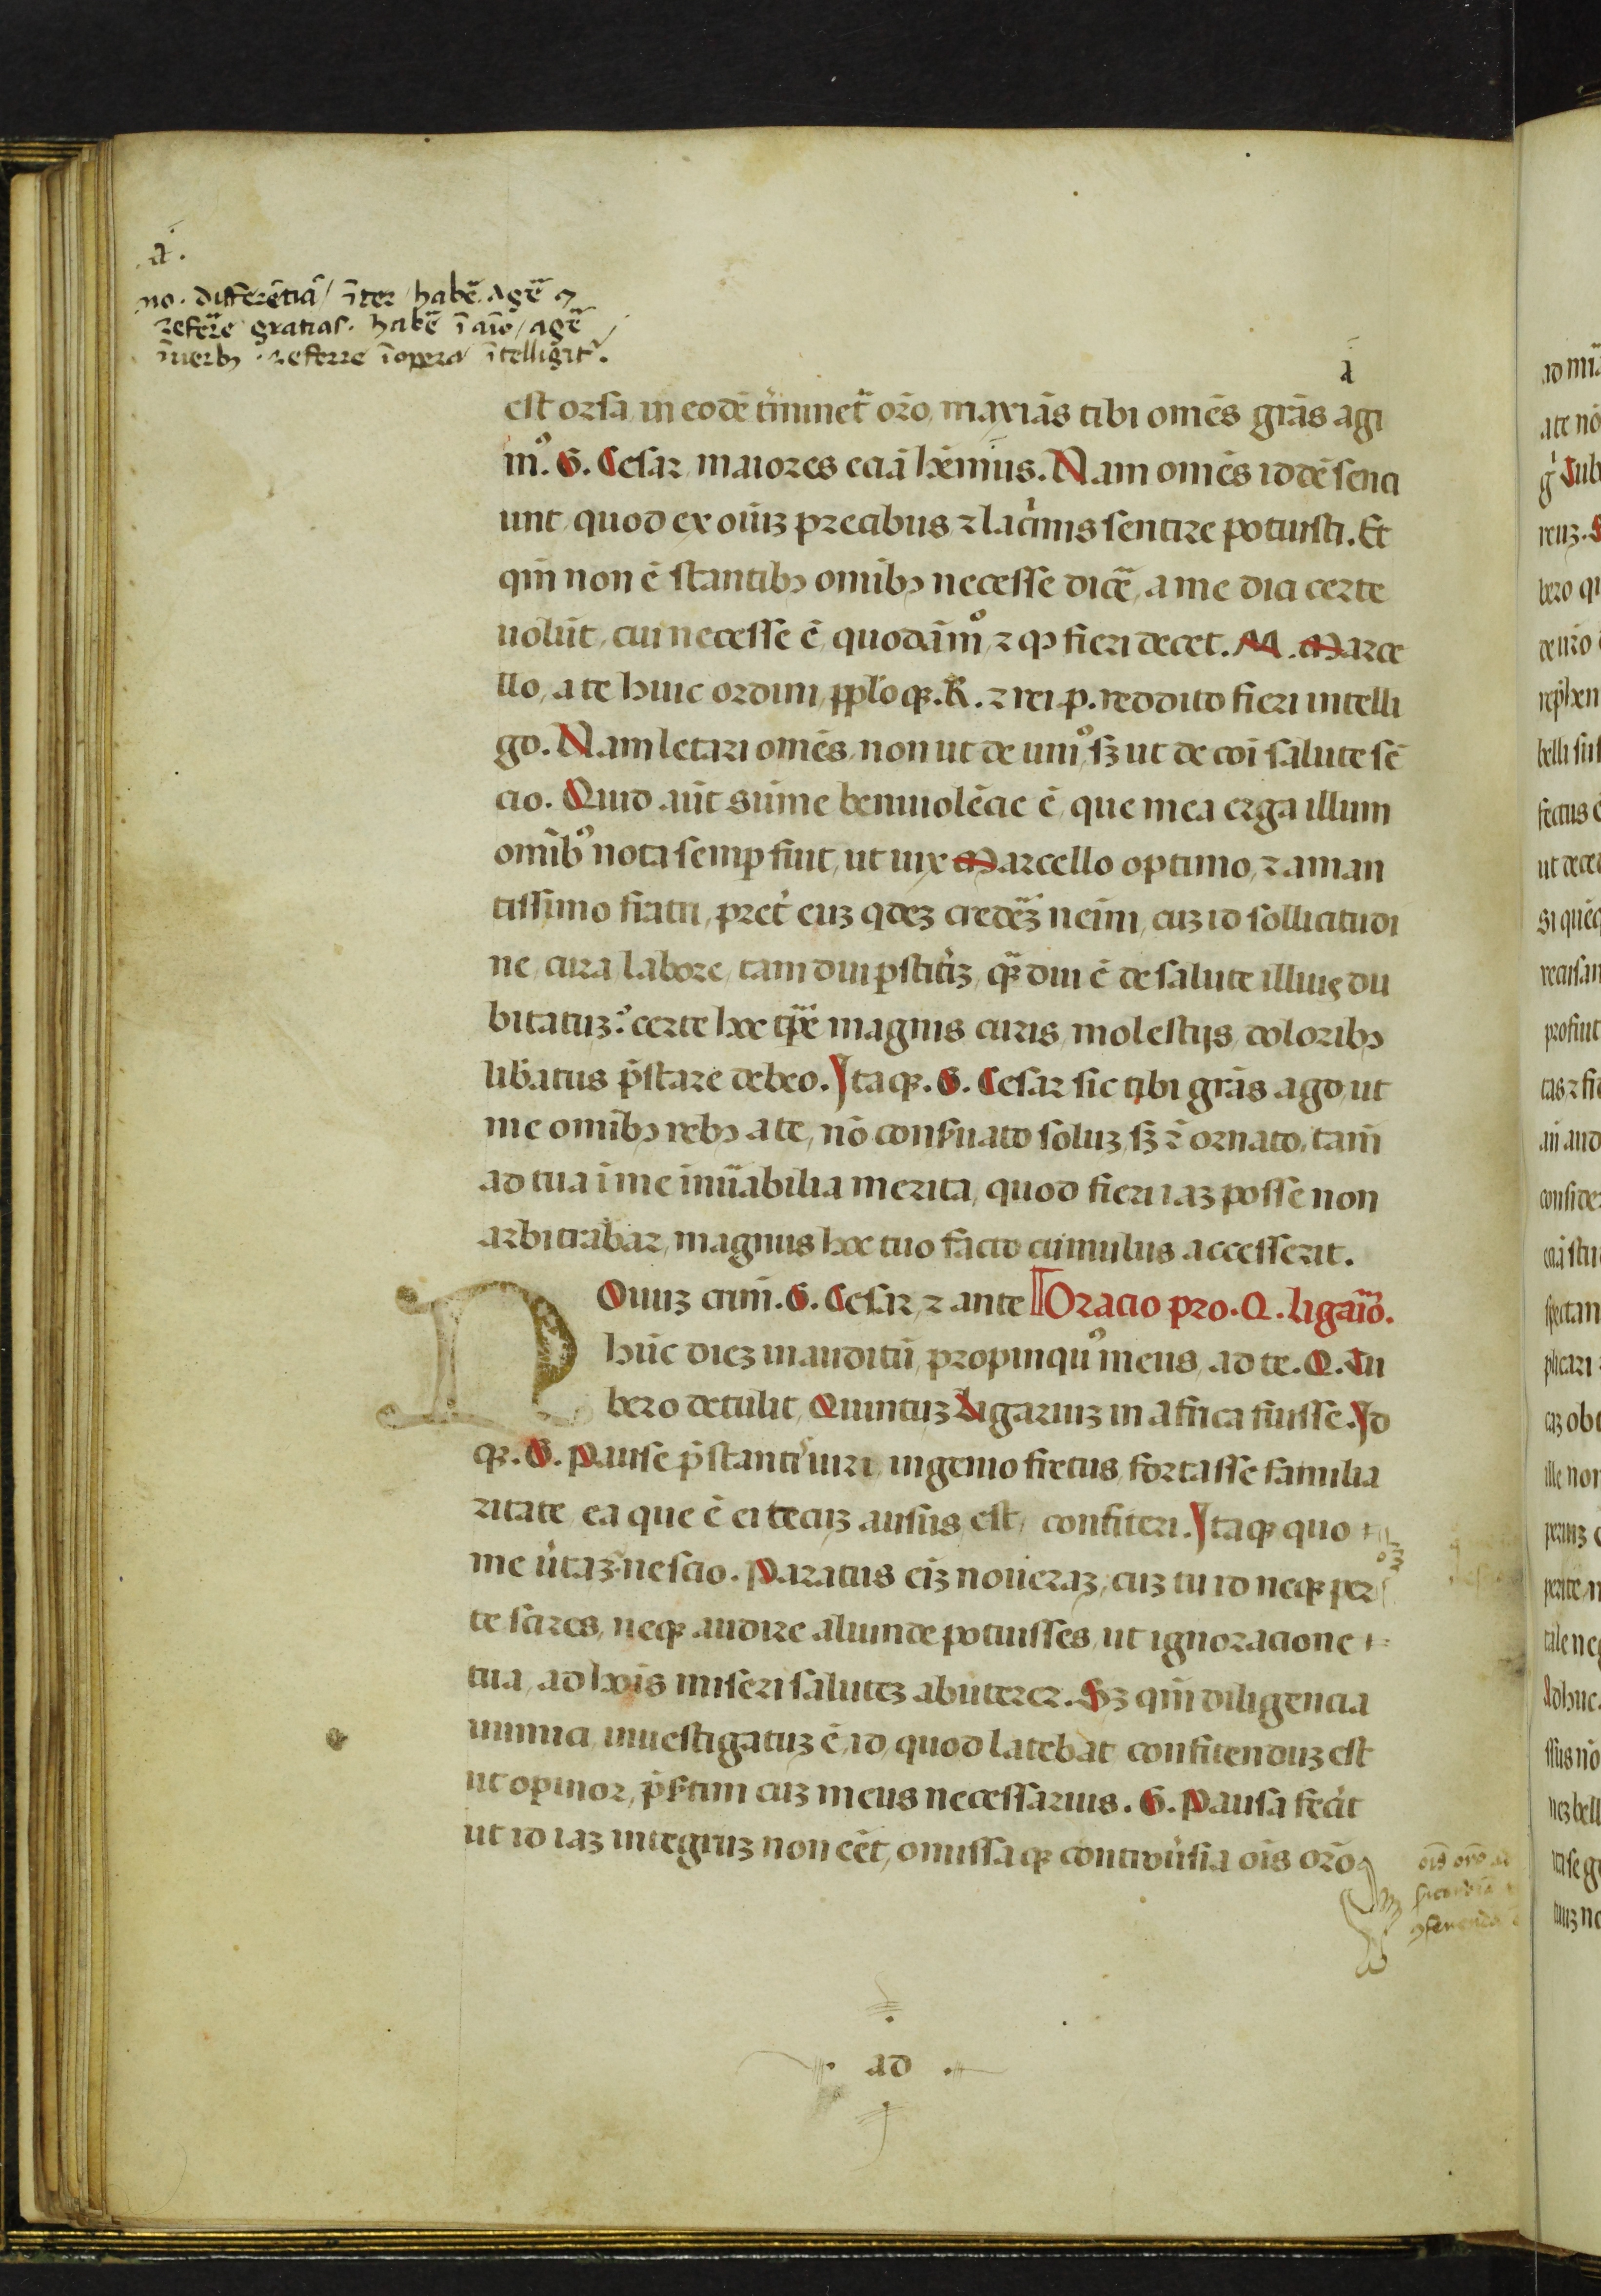 .a.
no. differẽtiã / ĩter / habẽ. agẽ ⁊
referẽ gratias. habẽ ĩ aĩo / agẽ /
ĩ uerbꝫ . referre ĩ opera ĩtelligit᷑.
a
est orsa, in eodẽ t̾minet᷑ or̃o, maxiãs tibi omẽs grãs agi
mꝰ. G. Cesar, maiores eciã hẽmus. Nam omẽs iddẽ senci
unt, quod ex oĩuꝫ precibus ⁊ lac̾mis sentire potuisti. Et
qm̃ non ẽ stantibꝫ omĩbꝫ necesse dicẽ, a me dici certe
uolũt, cui necesse ẽ, quodãmꝰ, ⁊ qꝫ fieri decet. M. Marce
llo, a te huic ordini, pp̃loqꝫ. R. ⁊ rei .p. reddito fieri intelli
go. Nam letari omẽs, non ut de uniꝰ, sꝫ ut de coĩ salute sẽ
cio. Quid aũt sũme beniuolẽcie ẽ, que mea erga illum
omĩbꝰ nota semp̱ fuit, ut uix Marcello optimo, ⁊ aman
tissimo fratri, pret̾ euꝫ q̃deꝫ credẽꝫ neĩm, cuꝫ id sollicitudi
ne, cura, labore, tam diu p̱stit̾iꝫ, q̃ꝫ diu ẽ de salute illius du
bitatuꝫ: certe hoc tp̃e magnis curis, molestijs, doloribꝫ
lib̾atus p̃stare debeo. Itaqꝫ. G. Cesar sic tibi grãs ago, ut
me omĩbꝫ rebꝫ a te, nõ conẜuato soluꝫ, sꝫ ⁊ ornato, tam̃
ad tua ĩ me inũabilia merita, quod fieri iaꝫ posse non
arbitrabar, magnus hoc tuo facto cumulus accesserit.
NOuuꝫ crim̃. G. Cesar, ⁊ ante Oracio pro. Q. ligario.
hũc dieꝫ inauditũ, propinquꝰ meus, ad te. Q. Tu
bero detulit, Quintuꝫ Ligariuꝫ in africa fuisse. Id
qꝫ. G. Pause p̃stantiꝰ uiri, ingenio fretus, fortasse familia
ritate, ea que ẽ ei tecuꝫ, ausus, est, confiteri. Itaqꝫ quo
me u̾taꝫ nescio. Paratus eĩꝫ noueraꝫ, cuꝫ tu id neqꝫ per
te scires, neqꝫ audire aliunde potuisses, ut ignoracione
tua, ad hoĩs miseri saluteꝫ abuterer. Sꝫ qm̃ diligencia
inimici, inuestigatuꝫ ẽ, id, quod latebat confitenduꝫ est
ut opinor, p̃ẜtim cuꝫ meus necessarius. G. Pausa fec̾it
ut id iaꝫ integruꝫ non eẽt, omissaqꝫ controu̾sia oĩs or̃o
oĩs or̃o ad
ad